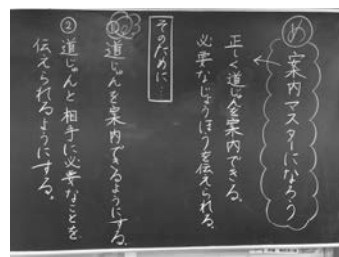 め
案内マスターになろう
正しく道じゅんを案内できる。
必要なじょうほうを伝えられる。
そのために…
① 道じゅんを案内できるようにする。
② 道じゅんと相手に必要なことを
伝えられるようにする。